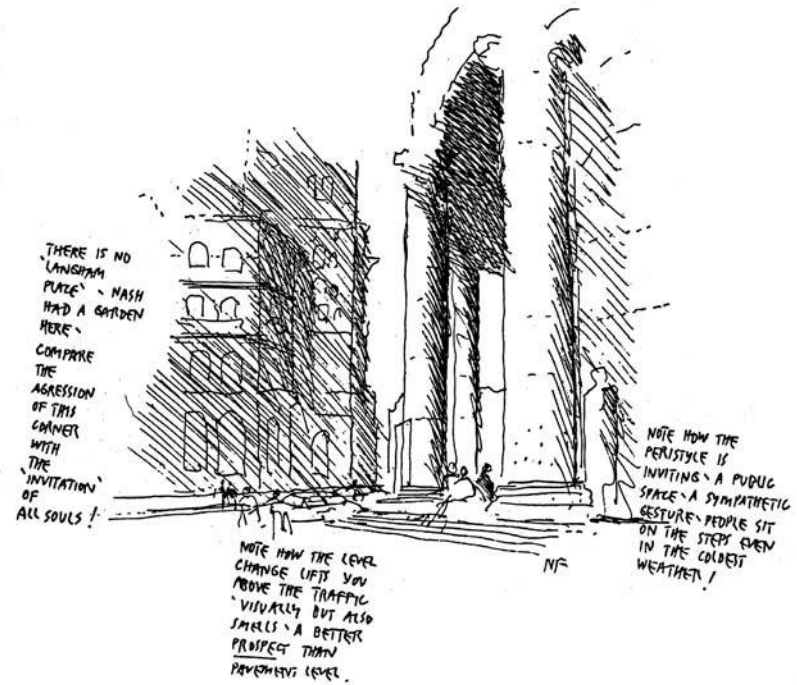 THERE IS NO
'LANGHAM
PLACE' - NASH
HAD A GARDEN
HERE -
COMPARE
THE
AGRESSION
OF THIS
CORNER
WITH
THE
'INVITATION'
OF
ALL SOULS!
NOTE HOW THE LEVEL
CHANGE LIFTS YOU
ABOVE THE TRAFFIC
'VISUALLY BUT ALSO
SMELLS - A BETTER
PROSPECT THAN
PAVEMENT LEVEL.
NF
NOTE HOW THE
PERISTYLE IS
INVITING - A PUBLIC
SPACE - A SYMPATHETIC
GESTURE - PEOPLE SIT
ON THE STEPS EVEN
IN THE COLDEST
WEATHER!